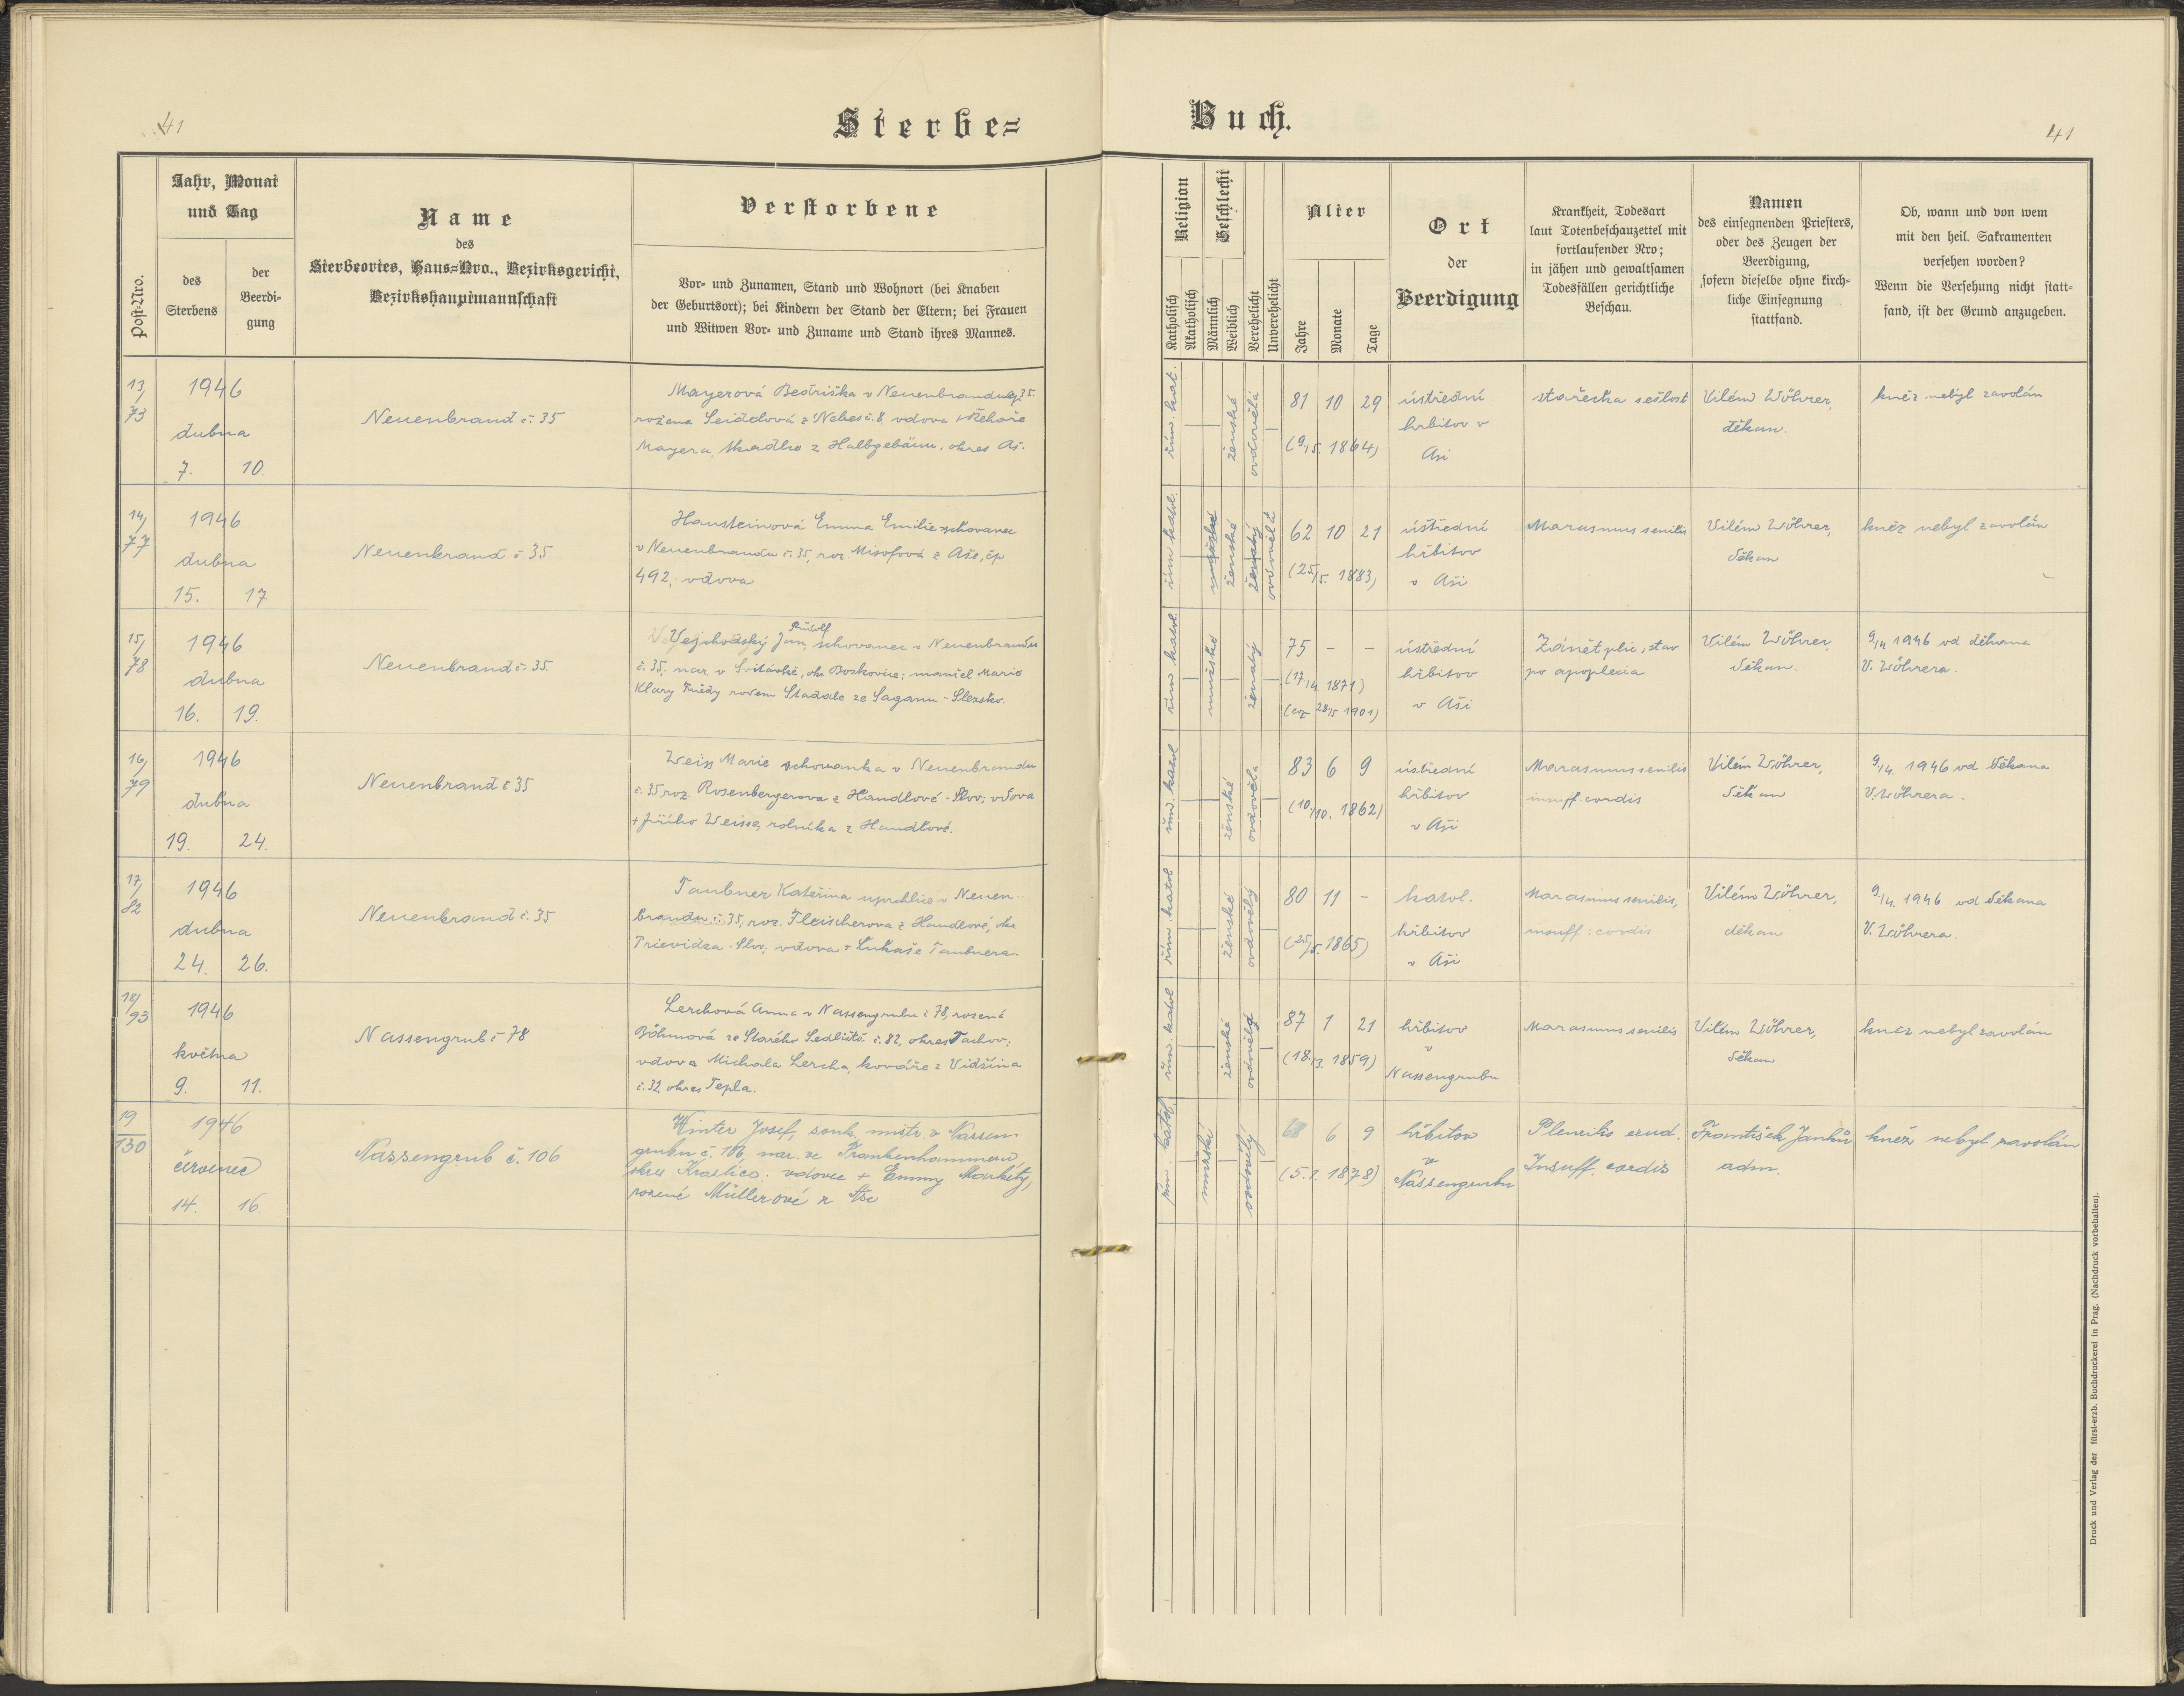 41
Sterbe=
Buch.
41
Post-Nro.
Jahr, Monat
und Tag
des
Sterbens
der
Beerdi-
gung
Name
des
Sterbeortes, Haus=Nro., Bezirksgericht,
Bezirkshauptmannschaft
Verstorbene
Vor- und Zunamen, Stand und Wohnort (bei Knaben
der Geburtsort); bei Kindern der Stand der Eltern; bei Frauen
und Witwen Vor- und Zuname und Stand ihres Mannes.
Religion
Katholisch
Akatholisch
Geschlecht
Männlich
Weiblich
Verehelicht
Unverehelicht
Alter
Jahre
Monate
Tage
Ort
der
Beerdigung
Krankheit, Todesart
laut Totenbeschauzettel mit
fortlaufender Nro;
in jähen und gewaltsamen
Todesfällen gerichtliche
Beschau.
Namen
des einsegnenden Priesters,
oder des Zeugen der
Beerdigung,
sofern dieselbe ohne kirch-
liche Einsegnung
stattfand.
Ob, wann und von wem
mit den heil. Sakramenten
versehen worden?
Wenn die Versehung nicht statt-
fand, ist der Grund anzugeben.
13/
73
1946
dubna
7. 10.
Neuenbrand č. 35
Mayerová Bedřiška v Neuenbrandu čp 35.
rozena Seidelová z Nebes č. 8, vdova + Řehoře
Mayera, tkadlce z Halbgebäu, okres Aš.
řím. kat.
ženské
ovdovělá
81 10 29
(9/5. 1864)
ústřední
hřbitov v
Aši
stařecka sešlost
Vilém Wöhrer,
děkan.
kněz nebyl zavolán
14/
77
1946
dubna
15. 17.
Neuenbrand č 35
Hausteinová Emma Emilie schovanec
v Neuenbrandu č. 35, roz Misofová z Aše, čp
492, vdova
řím katol.
mužské
ženské
ženatý
ovdovělá
62 10 21
(25/5. 1883)
ústřední
hřbitov
v Aši
Marasmus senilis
Vilém Wöhrer,
děkan
kněz nebyl zavolán
15/
78
1946
dubna
16. 19.
Neuenbrand č. 35
Rudolf
Vejchodský Jan, schovanec v Neuenbrandu
č. 35, nar. v Svitávce, okr Boskovice; manžel Marie
Klary Friedy rozen Stadale ze Saganu - Slezsko.
řím katol.
mužské
ženatý
75 - -
(17/4 1871)
(cop 28/5 1901)
ústřední
hřbitov
v Aši
Zánět plic, stav
po apoplecia
Vilém Wöhrer,
děkan.
9/4 1946 od děkana
V. Wöhrera.
16/
79
1946
dubna
19. 24.
Neuenbrand č 35
Weiss Marie schovanka v Neuenbrandu
č. 35, roz. Rosenbergerova z Handlové - Slov; vdova
+ Jiřího Weisse, rolníka z Handlové.
řím. katol
ženské
ovdověla
83 6 9
(10./10. 1862)
ústřední
hřbitov
v Aši
Marasmus senilis
insuff. cordis
Vilém Wöhrer,
děkan
9/4. 1946 od děkana
V. Wöhrera.
17/
82
1946
dubna
24. 26.
Neuenbrand č. 35
Taubner Kateřina uprchlice v Neuen-
brandu č. 35, roz. Fleischerova z Handlové, okr
Prievidza - Slov; vdova + Lukaše Taubnera.
řím. katol
ženské
ovdovělý
80 11 -
(25/5. 1865)
katol.
hřbitov
v Aši
Marasmus senilis,
insuff: cordis
Vilém Wöhrer,
děkan
9/4. 1946 od děkana
V. Wöhrera.
18/
93
1946
května
9. 11.
Nassengrub č 78
Lerchová Anna v Nassengrubu č 78, rozená
Böhmová ze Starého Sedliště č. 82, okres Tachov;
vdova Michala Lercha, kováře z Vidžína
č. 32, okres Tepla.
řím. katol
ženské
ovdovělá
87 1 21
(18./3. 1859)
hřbitov
v
Nassengrubu
Marasmus senilis
Vilém Wöhrer,
děkan
kněz nebyl zavolán
19
130
1946
červenec
14. 16
Nassengrub č. 106
Winter Josef, souk. mistr v Nassen-
grubu č. 106, nar. ve Frankenhammeru,
okres Kraslice: vdovec + Emmy Markéty,
rozené Müllerové z Aše
řím. katol.
mužské
ovdovělý
68 6 9
(5. 1. 1878)
hřbitov
v
Nassengrubu
Pleuritis exud.
Insuff. cordis
František Janků
adm.
kněz nebyl zavolán
Druck und Verlag der fürst-erzb. Buchdruckerei in Prag. (Nachdruck vorbehalten).